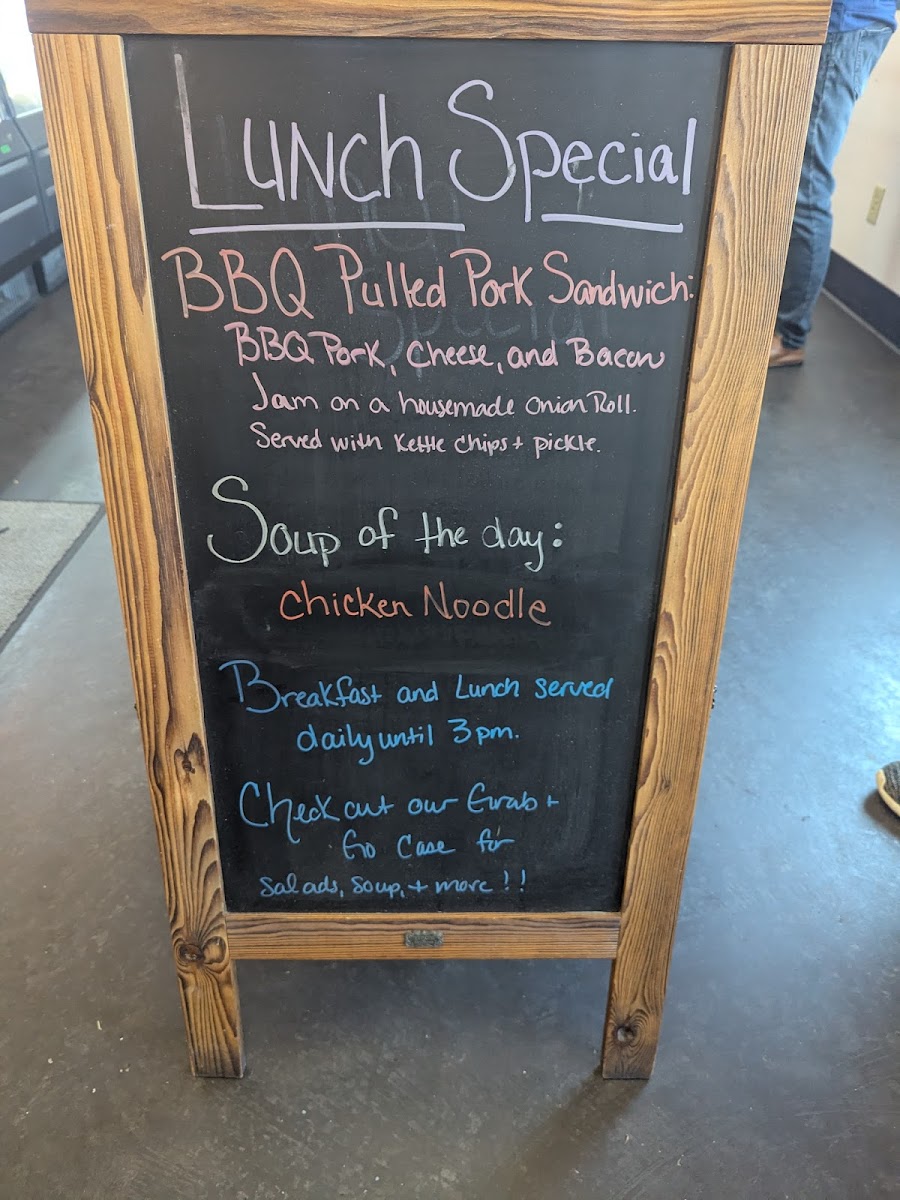 Lunch Special
BBQ Pulled Pork Sandwich:
BBQ Pork, Cheese, and Bacon
Jam on a housemade Onion Roll.
Served with Kettle Chips + pickle.
Soup of the day:
Chicken Noodle
Breakfast and Lunch served
daily until 3pm.
Check out our Grab +
Go Case for
Salads, Soup, + more!!